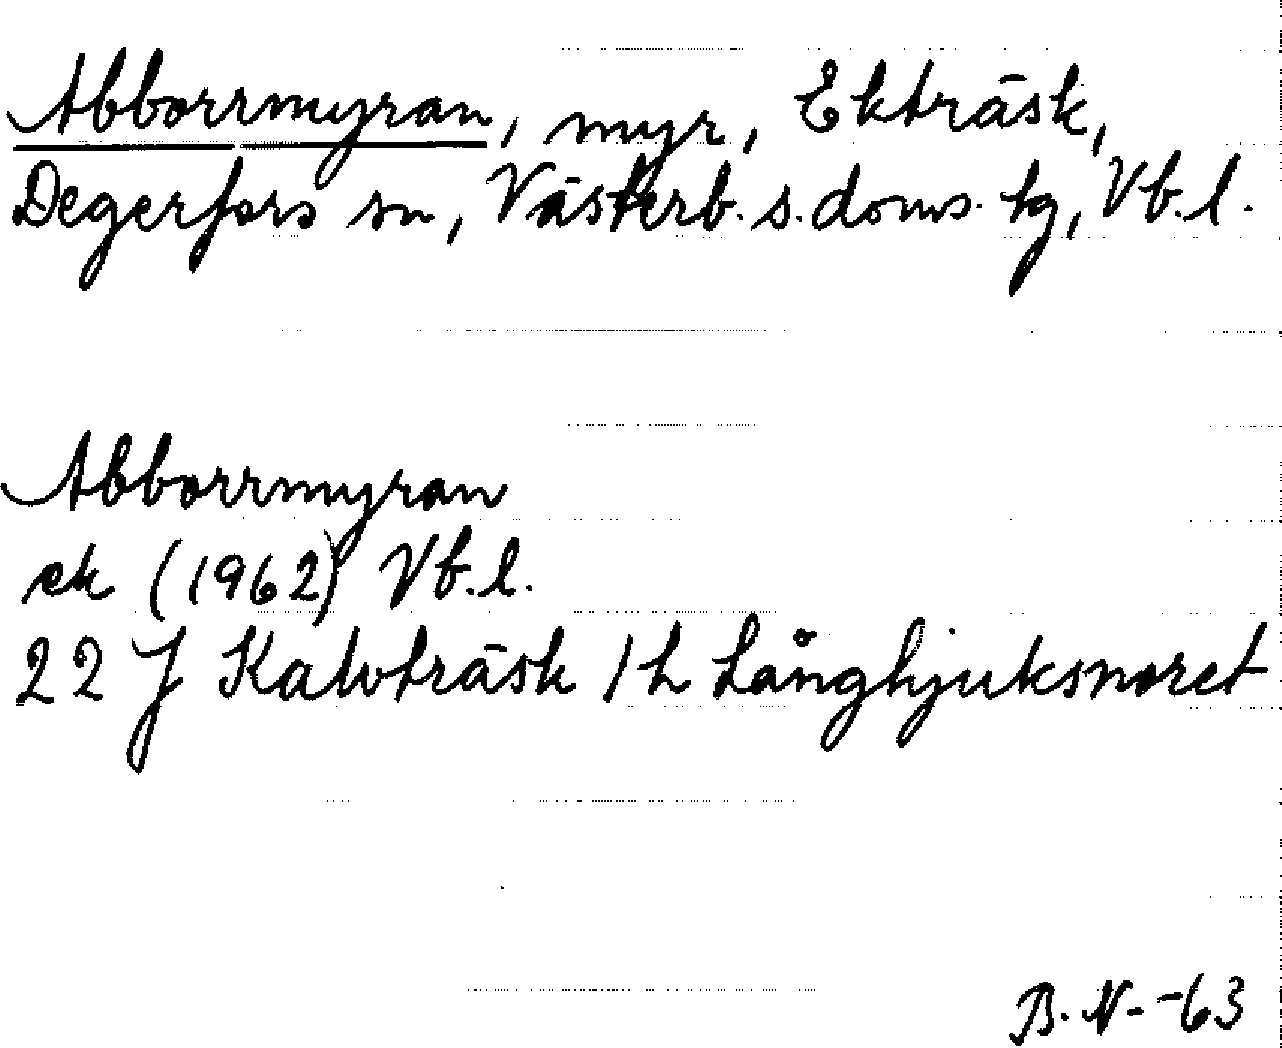 Abborrmyran, myr, Ekträsk,
Degerfors sn, Västerb. s. doms. tg, Vb. l.
Abborrmyran
ek (1962) Vb. l.
22 J Kalvträsk 1 h Långhjuksnoret
B. N- -63